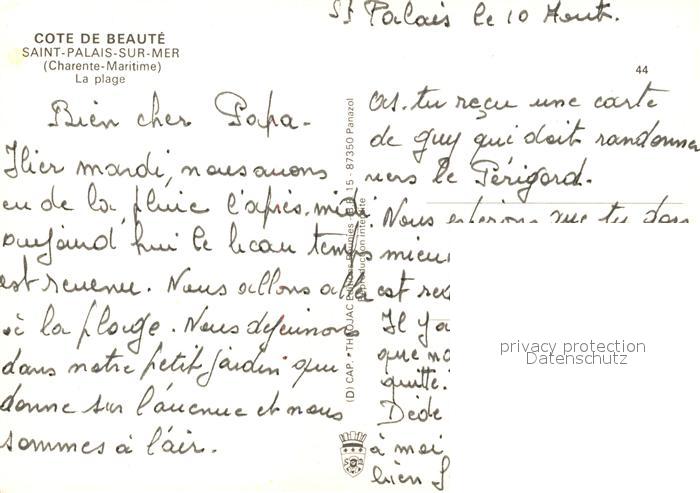 St Palais le 10 Aout.
COTE DE BEAUTÉ
SAINT-PALAIS-SUR-MER
(Charente-Maritime)
La plage
44
Bien cher Papa.
Hier mardi, nous avons
eu de la pluie l'après-midi.
aujourd'hui le beau temps
est revenu. Nous allons
à la plage. Nous déjeunons
dans notre petit jardin qui
donne sur l'avenue et nous
sommes à l'air.
(D) CAP. • THEOJAC 15 - 87350 Panazol
As-tu reçu une carte
de Guy qui doit randonner
vers le Périgord.
Nous espérons que tu
mieux
est
Il y a
que
quitte.
Dédé
à moi
bien
privacy protection
Datenschutz